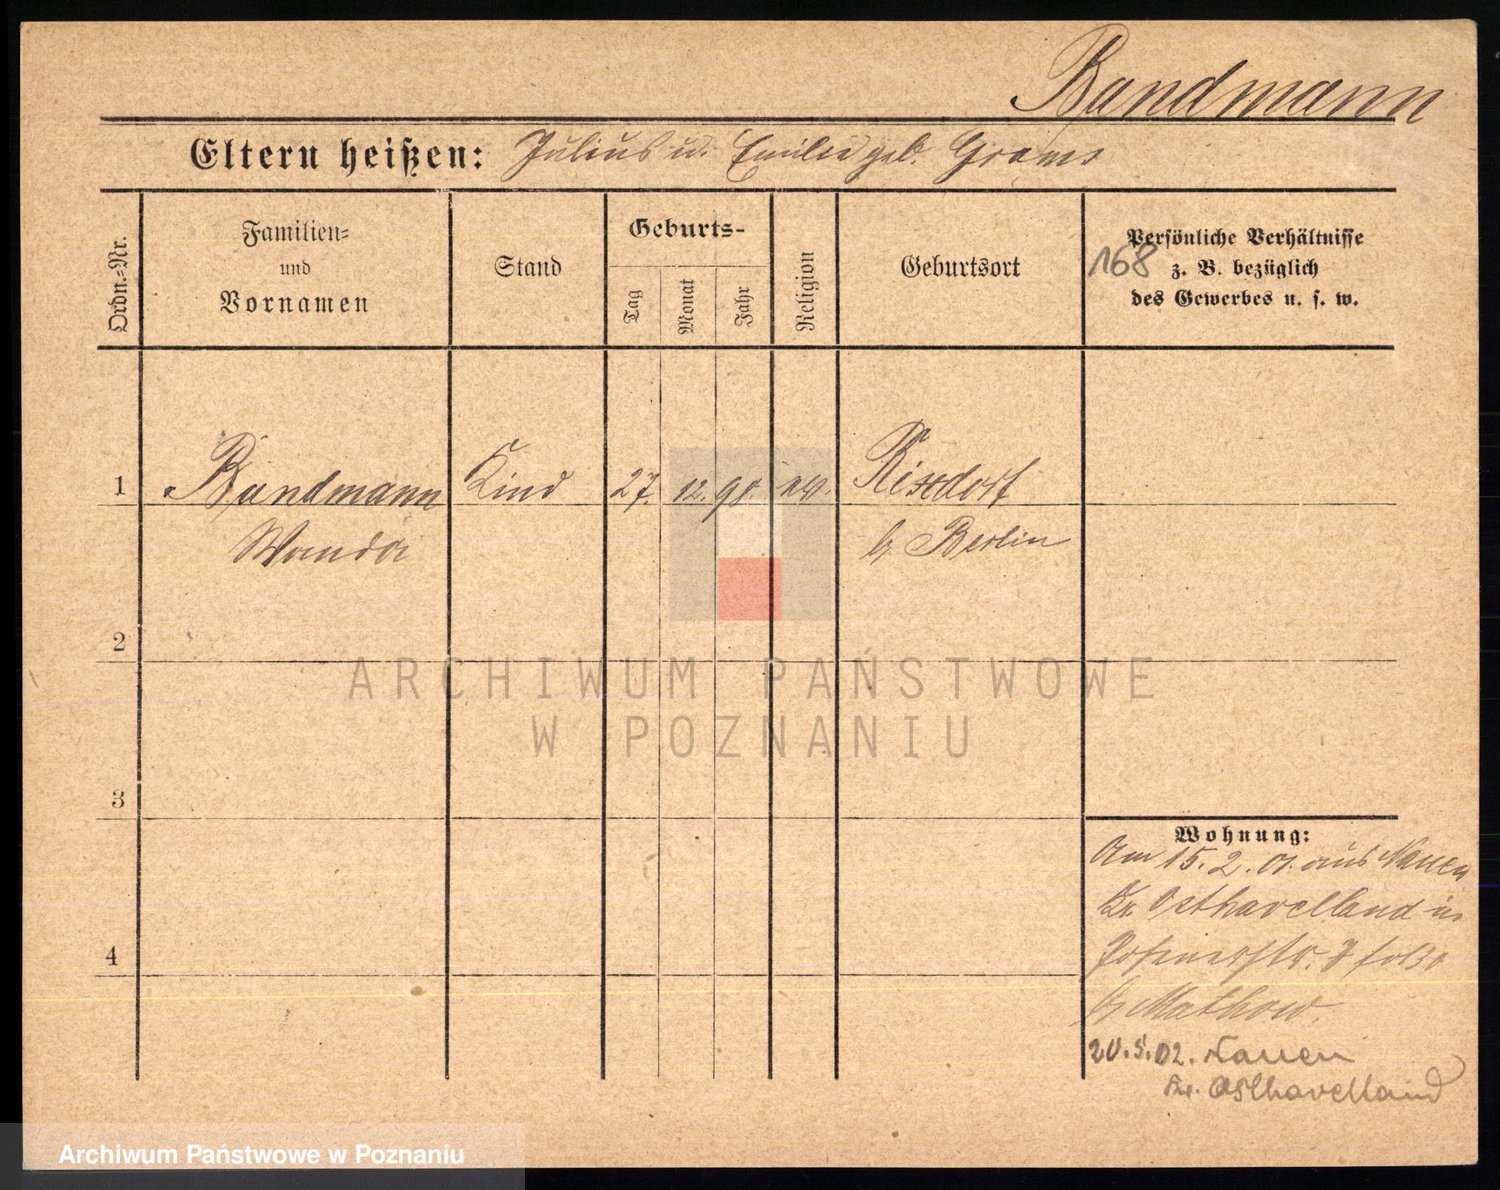 Bandmann
Eltern heißen: Julius u. Emilie geb. Grams
Ordn.-Nr.
Familien-
und
Vornamen
Stand
Geburts-
Tag
Monat
Jahr
Religion
Geburtsort
Persönliche Verhältnisse
z. B. bezüglich
des Gewerbes u. s. w.
168
1 Bandmann Kind 27. 12. 98. ev. Rixdorf
Wanda b/ Berlin
2
3
4
Wohnung:
Am 15. 2. 01. aus Nauen
Kr. Osthavelland in
Posenerstr. 7
b/ Mathow.
20.5.02. Nauen
Kr. Osthavelland
ARCHIWUM PAŃSTWOWE
W POZNANIU
Archiwum Państwowe w Poznaniu